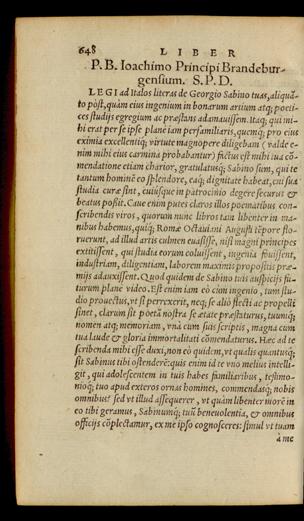 648 LIBER
P. B. Ioachimo Principi Brandebur-
gensium. S. P. D.
LEGI ad Italos literas de Georgio Sabino tuas, aliquã
to pòst, quàm eius ingenium in bonarum artium atq; poeti-
ces studijs egregium ac præstans adamauissem. Itaq; qui mi-
hi erat per se ipse planè iam perfamiliaris, quemq; pro eius
eximia excellentiq; virtute magnopere diligebam (valde e-
nim mihi eius carmina probabantur) factus est mihi tua cõ-
mendatione etiam charior, gratulatusq; Sabino sum, qui te
tantum hominẽ eo splendore, eaq; dignitate habeat, cui sua
studia curæ sint, cuiusq́ue in patrocinio degere securus &
beatus poßit. Caue enim putes claros illos poematibus con-
scribendis viros, quorum nunc libros tam libenter in ma-
nibus habemus, quiq; Romæ Octauiani Augusti tẽpore flo-
ruerunt, ad illud artis culmen euasisse, nisi magni principes
extitissent, qui studia eorum coluissent, ingenia fouissent,
industriam, diligentiam, laborem maximis propositis præ-
mijs adauxissent. Quod quidem de Sabino tuis auspicijs fu-
turum planè video. Est enim iam eò cùm ingenio, tum stu-
dio prouectus, vt si perrexerit, neq; se aliò flecti ac propelli
sinet, clarum sit poëtã nostra se ætate præstaturus, tuumq;
nomen atq; memoriam, vnà cum suis scriptis, magna cum
tua laude & gloria immortalitati cõmendaturus. Hæc ad te
scribenda mihi esse duxi, non eò quidem, vt qualis quantusq;
sit Sabinus tibi ostenderẽ: quis enim id te vno meliùs intelli-
git, qui adolescentem in tuis habes familiaribus, testimo-
nioq́; tuo apud exteros ornas homines, commendasq; nobis
omnibus? sed vt illud assequerer, vt quàm libenter morẽ in
eo tibi geramus, Sabinumq; tuũ beneuolentia, & omnibus
officijs cõplectamur, ex me ipso cognosceres: simul vt tuam
à me